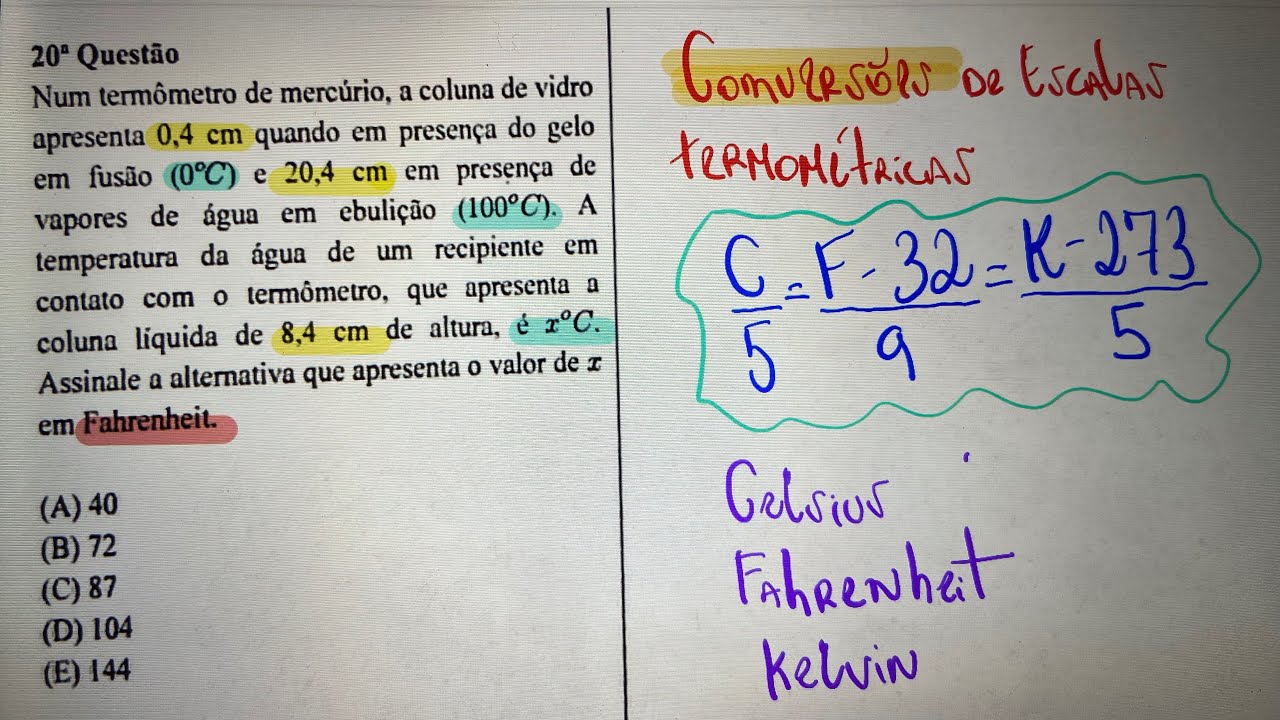 20ª Questão
Num termômetro de mercúrio, a coluna de vidro
apresenta 0,4 cm quando em presença do gelo
em fusão (0°C) e 20,4 cm em presença de
vapores de água em ebulição (100°C). A
temperatura da água de um recipiente em
contato com o termômetro, que apresenta a
coluna líquida de 8,4 cm de altura, é x°C.
Assinale a alternativa que apresenta o valor de x
em Fahrenheit.
(A) 40
(B) 72
(C) 87
(D) 104
(E) 144
Conversões de Escalas
termométricas
C/5 = F - 32/9 = K - 273/5
Celsius
Fahrenheit
Kelvin